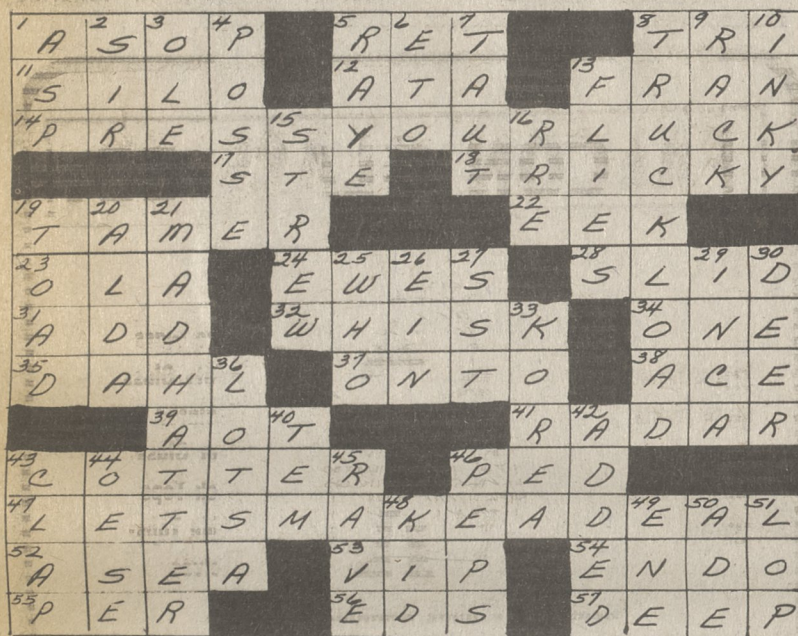 1 A 2 S 3 O 4 P 5 R 6 E 7 T 8 T 9 R 10 I
11 S I L O 12 A T A 13 F R A N
14 P R E S 15 S Y O U 16 R L U C K
17 S T E 18 T R I C K Y
19 T 20 A 21 M E R 22 E E K
23 O L A 24 E 25 W 26 E 27 S 28 S L 29 I 30 D
31 A D D 32 W H I S 33 K 34 O N E
35 D A H 36 L 37 O N T O 38 A C E
39 A O 40 T 41 R 42 A D A R
43 C 44 O T T E 45 R 46 P E D
47 L E T S M A 48 K E A D 49 E 50 A 51 L
52 A S E A 53 V I P 54 E N D O
55 P E R 56 E D S 57 D E E P